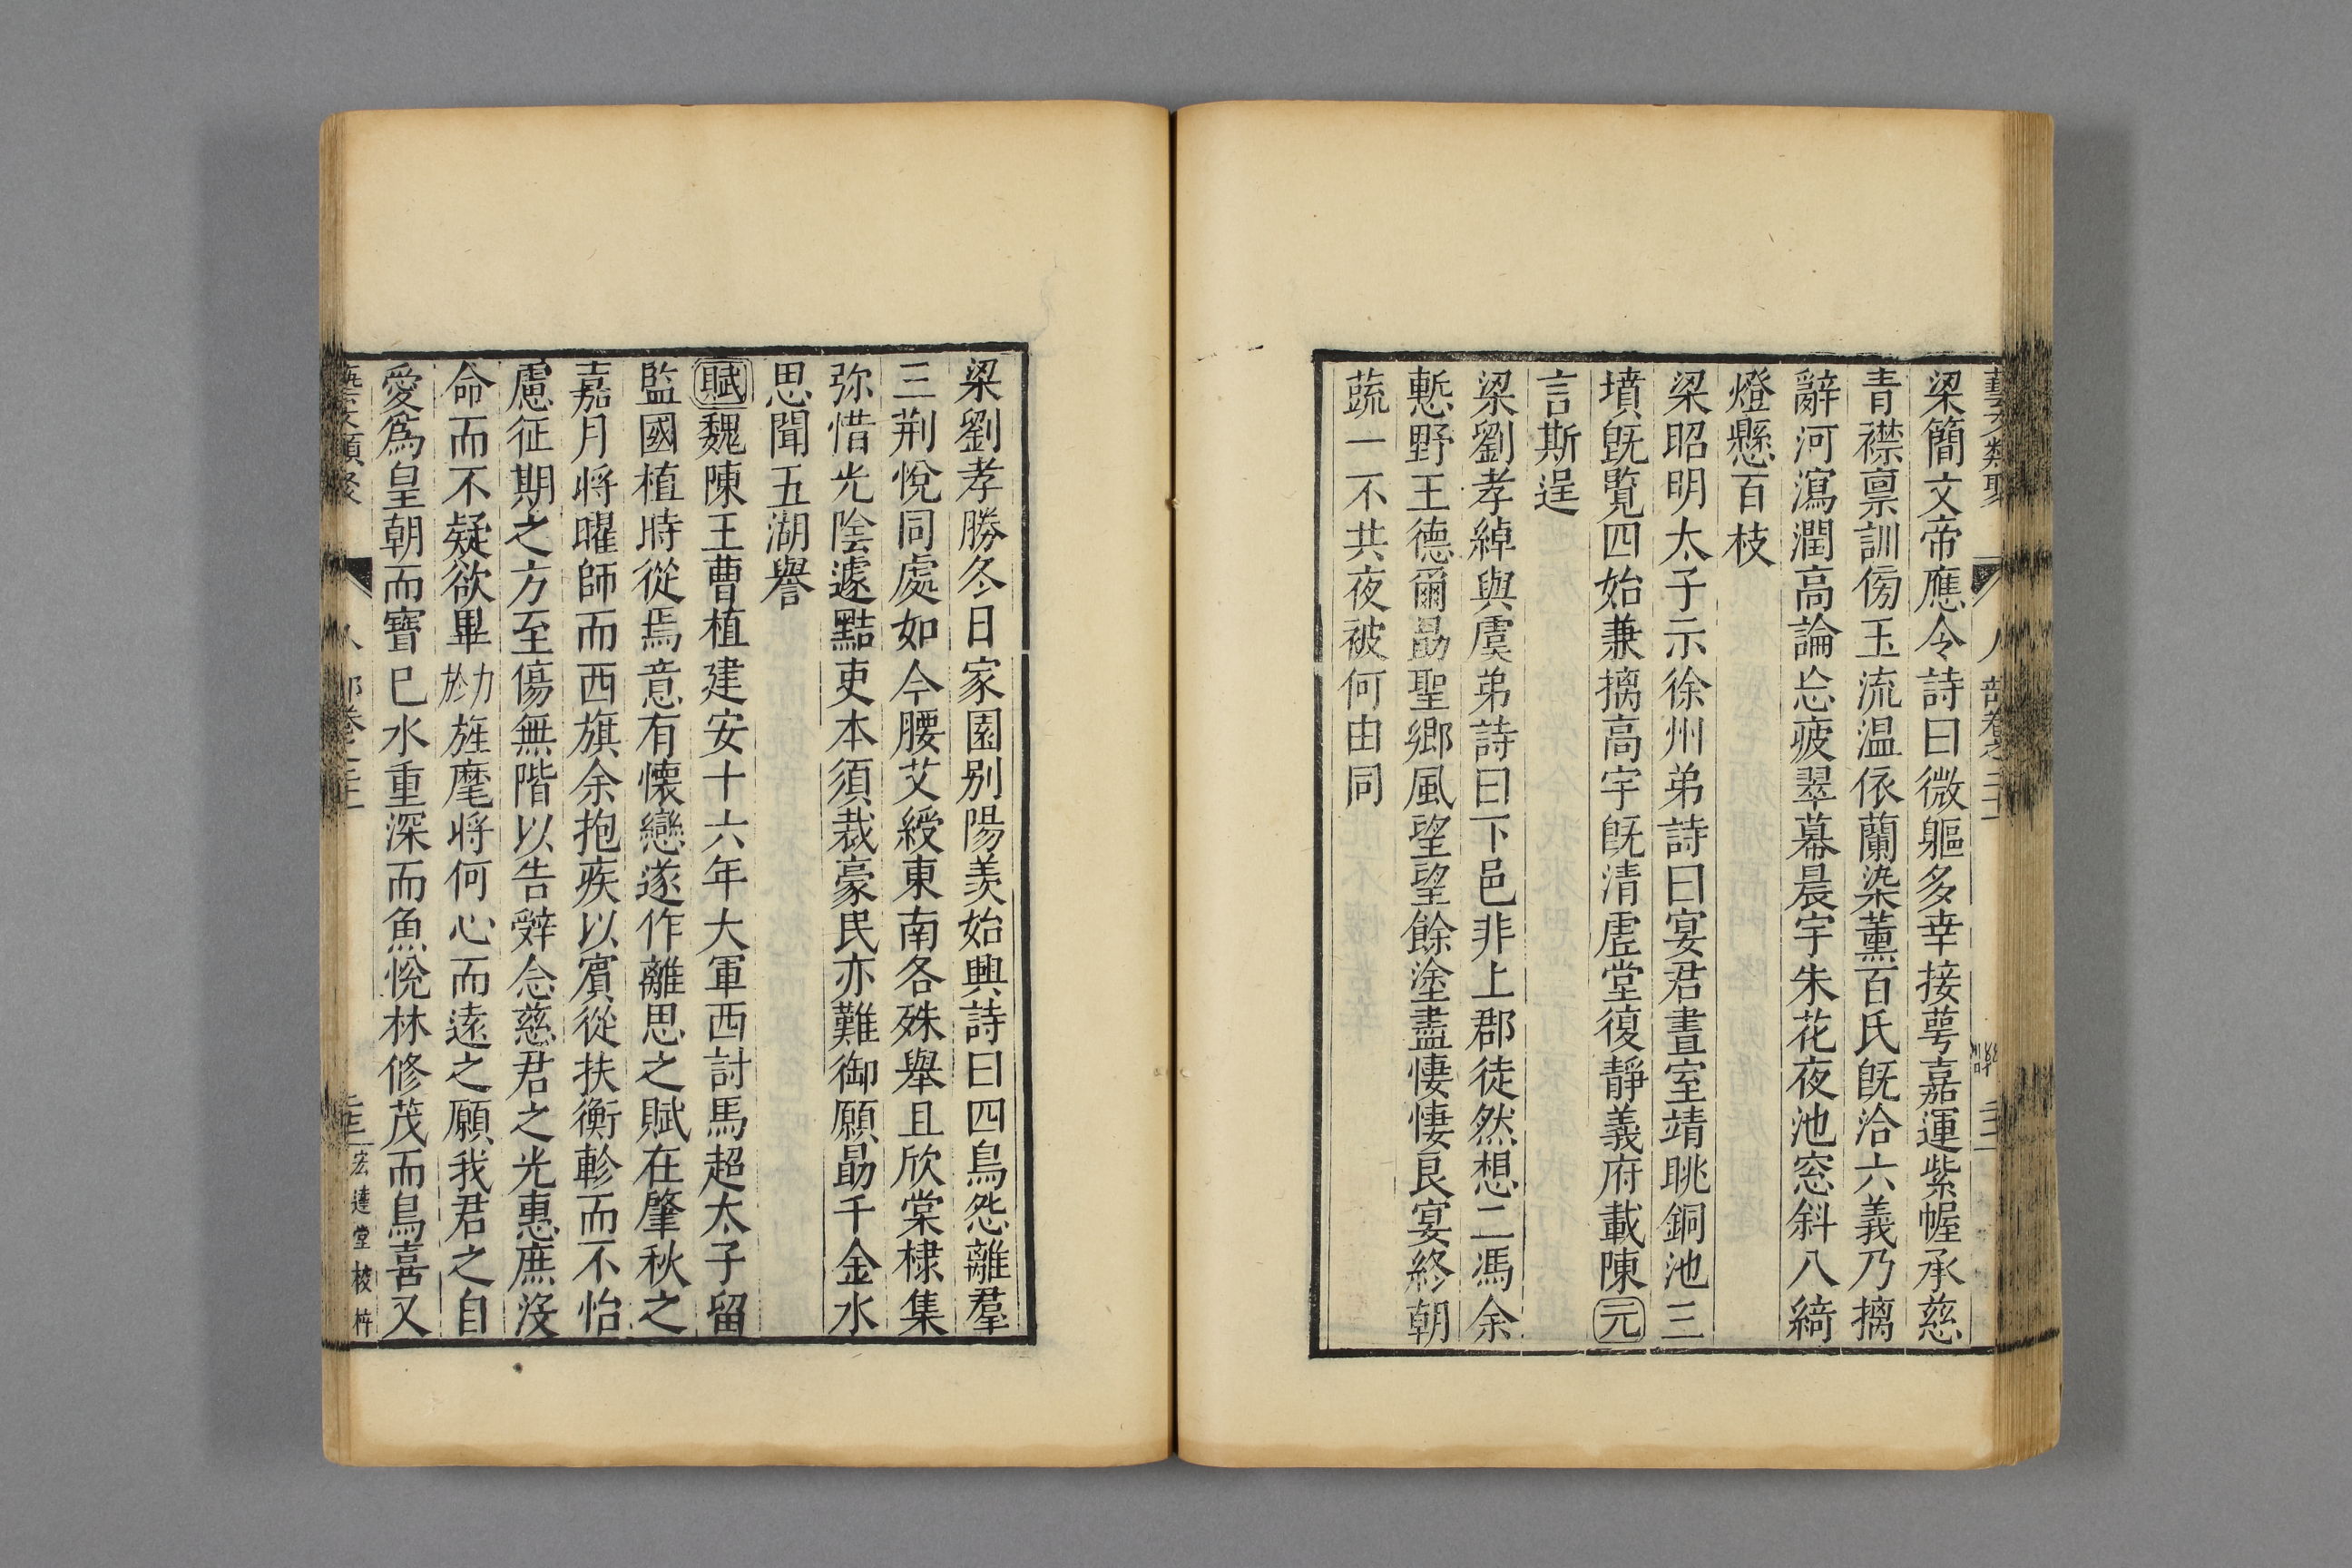 藝文類聚 人部卷之二十一 三十二
梁簡文帝應令詩曰微軀多幸接萼嘉運紫幄承慈
青襟禀訓傍玉流温依蘭染薰百氏旣洽六義乃摛
辭河瀉潤高論忘疲翠幕晨宇朱花夜池窓斜八綺
燈懸百枝
梁昭明太子示徐州弟詩曰宴君晝室靖眺銅池三
墳旣覽四始兼摛高宇旣清虛堂復靜義府載陳元
言斯逞
梁劉孝綽與虞弟詩曰下邑非上郡徒然想二馮余
慙野王德爾勗聖鄉風望望餘塗盡悽悽良宴終朝
蔬一不共夜被何由同
梁劉孝勝冬日家園別陽羨始興詩曰四鳥怨離羣
三荆悅同處如今腰艾綬東南各殊舉且欣棠棣集
弥惜光陰遽點吏本須裁豪民亦難御願勗千金水
思聞五湖譽
賦魏陳王曹植建安十六年大軍西討馬超太子留
監國植時從焉意有懷戀遂作離思之賦在肇秋之
嘉月將曜師而西旗余抱疾以賓從扶衡軫而不怡
慮征期之方至傷無階以告辤念慈君之光惠庶沒
命而不疑欲畢力於旌麾將何心而遠之願我君之自
愛爲皇朝而寶巳水重深而魚悅林修茂而鳥喜又
藝文類聚 人部卷二十一 三十三 宏達堂校梓